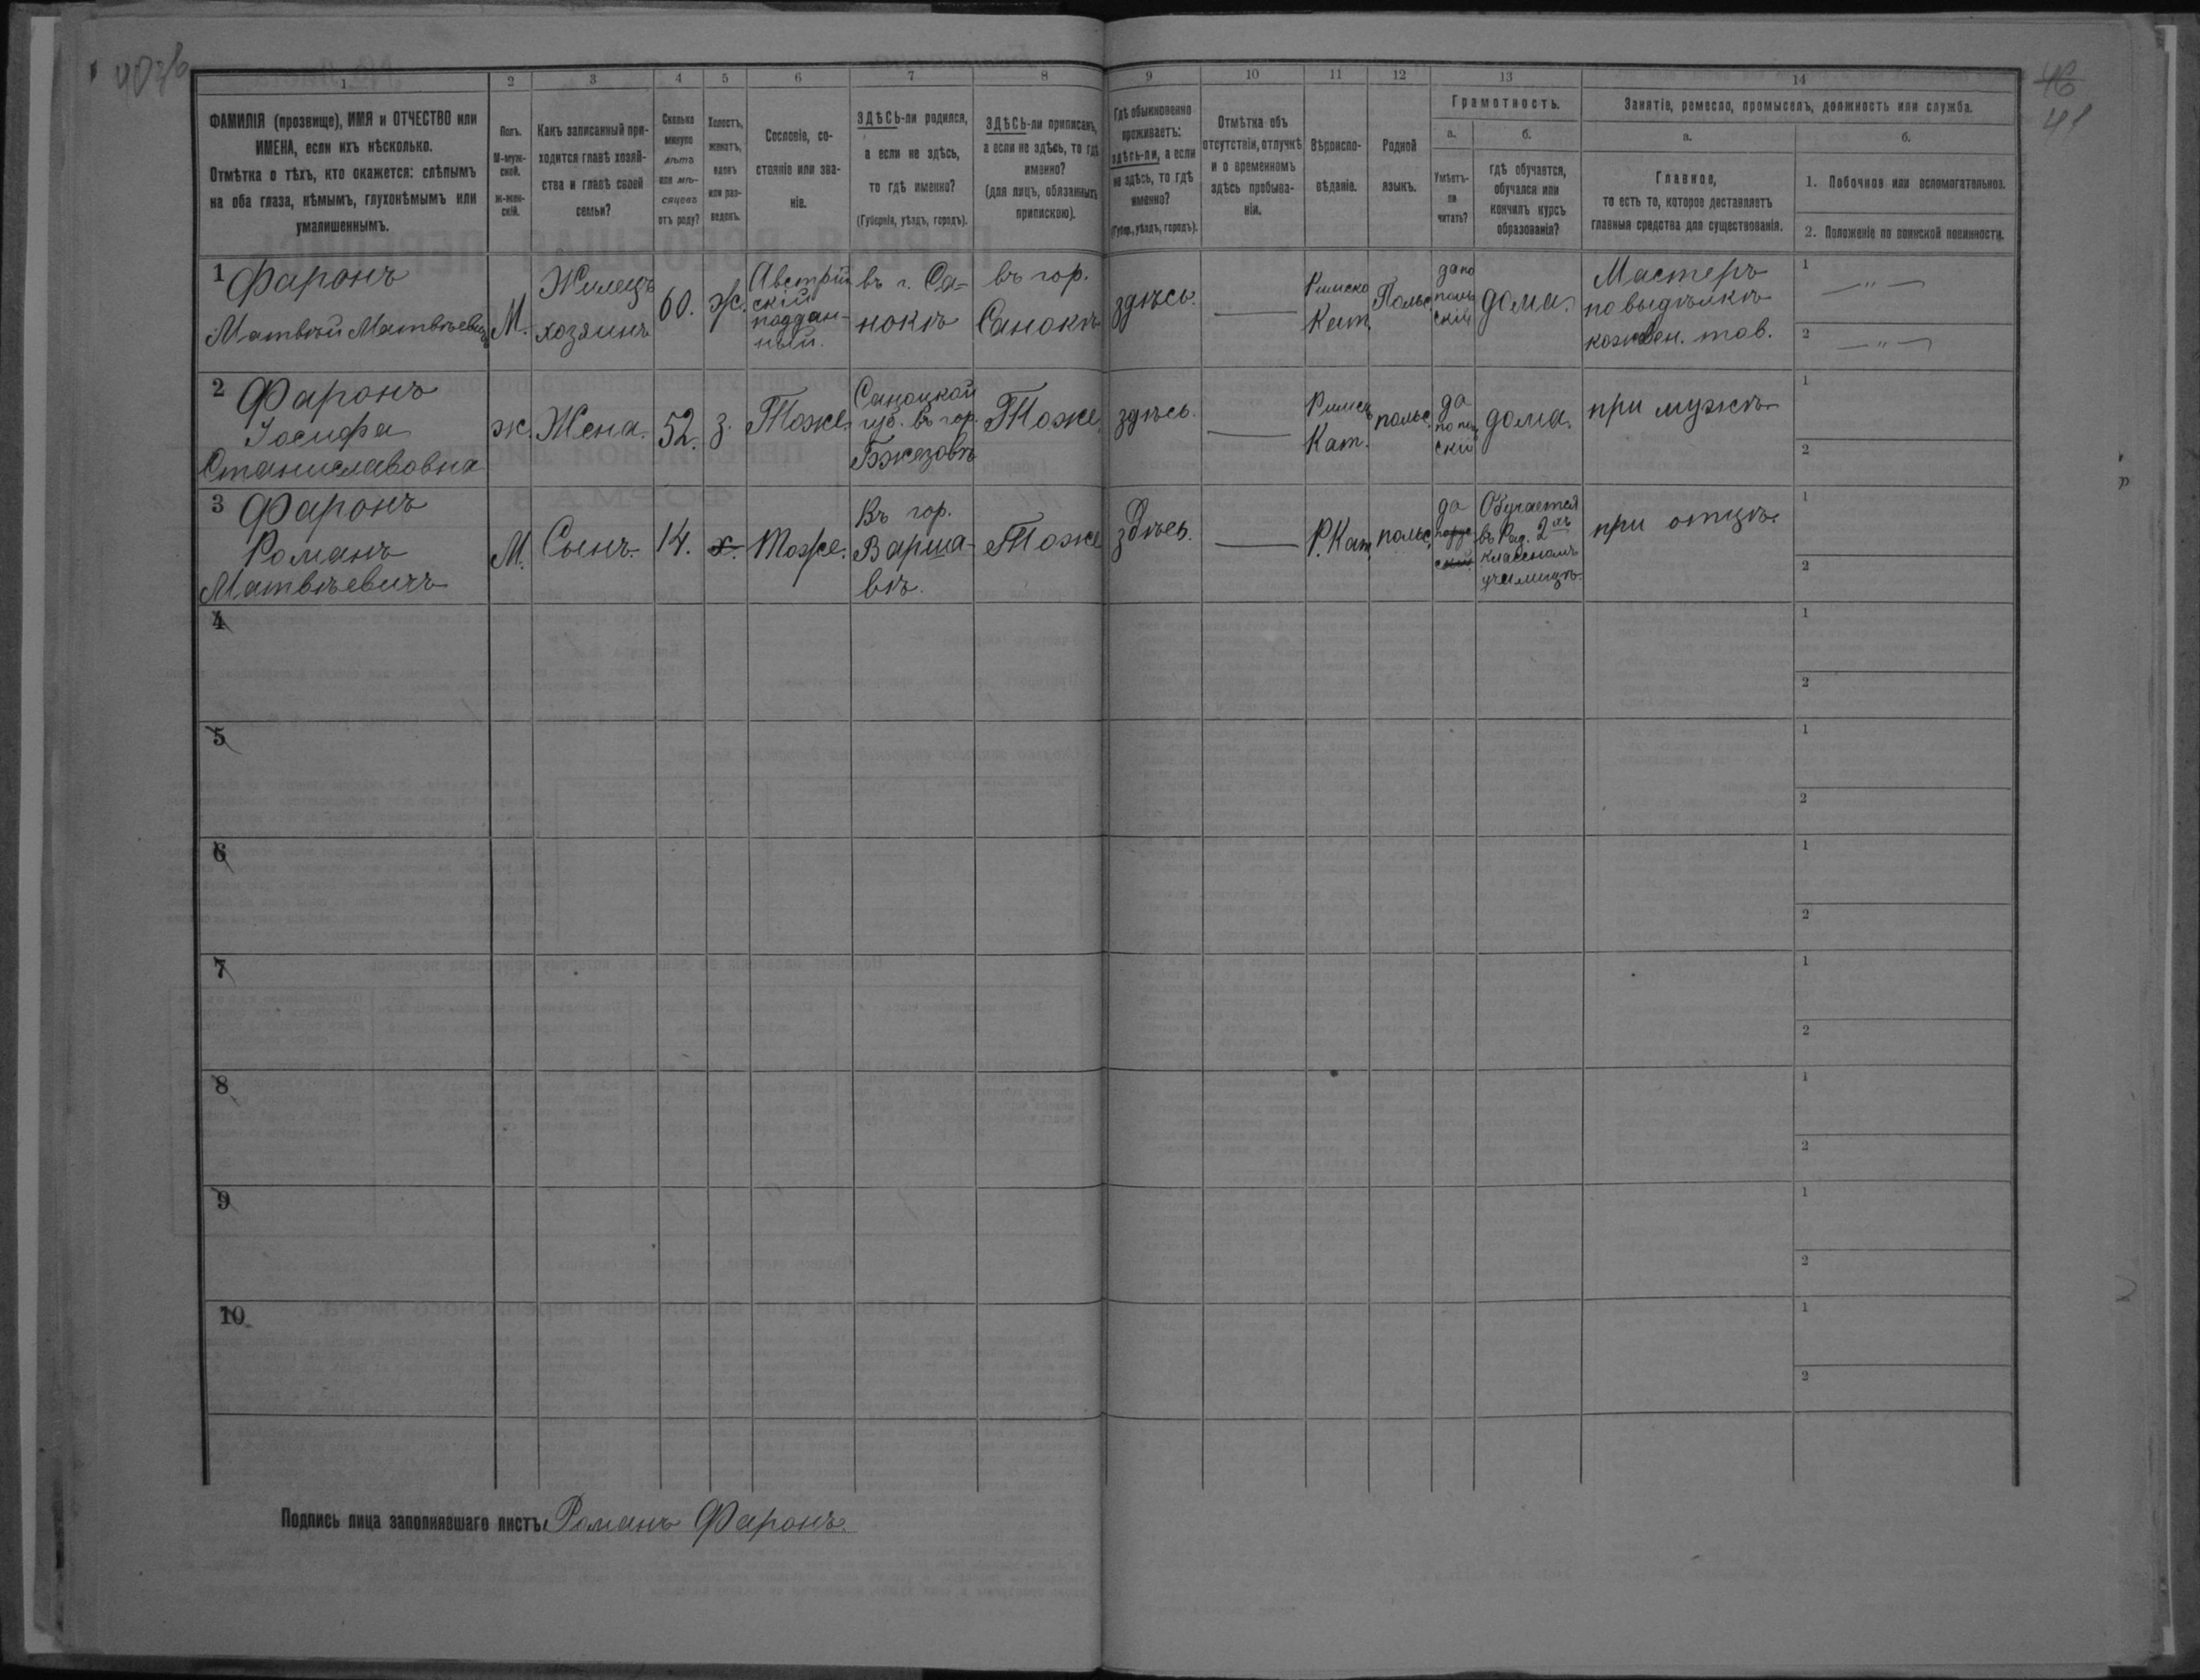 40 об
46
41
1 2 3 4 5 6 7 8 9 10 11 12 13 14
ФАМИЛІЯ (прозвище), ИМЯ и ОТЧЕСТВО или
ИМЕНА, если ихъ нѣсколько.
Отмѣтка о тѣхъ, кто окажется: слѣпымъ
на оба глаза, нѣмымъ, глухонѣмымъ или
умалишеннымъ.
Полъ.
М-муж-
ской.
ж-жен-
скій.
Какъ записанный при-
ходится главѣ хозяй-
ства и главѣ своей
семьи?
Сколько
минуло
лѣтъ
или мѣ-
сяцевъ
отъ роду?
Холостъ,
женатъ,
вдовъ
или раз-
веденъ.
Сословіе, со-
стояніе или зва-
ніе.
ЗДѢСЬ-ли родился,
а если не здѣсь,
то гдѣ именно?
(Губернія, уѣздъ, городъ).
ЗДѢСЬ-ли приписанъ,
а если не здѣсь, то гдѣ
именно?
(для лицъ, обязанныхъ
припискою).
Гдѣ обыкновенно
проживаетъ:
здѣсь-ли, а если
не здѣсь, то гдѣ
именно?
(Губер., уѣздъ, городъ).
Отмѣтка объ
отсутствіи, отлучкѣ
и о временномъ
здѣсь пребыва-
ніи.
Вѣроиспо-
вѣданіе.
Родной
языкъ.
Грамотность.
а.
Умѣетъ-
ли
читать?
б.
гдѣ обучается,
обучался или
кончилъ курсъ
образованія?
Занятіе, ремесло, промыселъ, должность или служба.
а.
Главное,
то есть то, которое доставляетъ
главныя средства для существованія.
б.
1. Побочное или вспомогательное.
2. Положеніе по воинской повинности.
1 Фаронъ
Матвѣй Матвѣевичъ
М.
Жилецъ
хозяинъ
60.
Ж.
Австрій
скій
поддан-
ный.
въ г. Са-
нокѣ
въ гор.
Санокѣ
здѣсь.
Римско
Кат.
Польс.
да по
поль
скій
дома.
Мастеръ
по выдѣлкѣ
кожевен. тов.
1 — " —
2 — " —
2 Фаронъ
Іосифа
Станиславовна
ж.
Жена.
52.
З.
Тоже.
Саноцкой
губ. въ гор.
Бжезовѣ
Тоже.
здѣсь.
Римск
Кат.
польс.
да
по пол
скій
дома.
при мужѣ
1
2
3 Фаронъ
Романъ
Матвѣевичъ
М.
Сынъ.
14.
х.
Тоже.
Въ гор.
Варша-
вѣ.
Тоже
здѣсь.
Р. Кат.
польс.
да
порус
ский
Обучается
въ Рад. 2хъ
классномъ
училищѣ.
при отцѣ.
1
2
4
1
2
5
1
2
6
1
2
7
1
2
8
1
2
9
1
2
10
1
2
Подпись лица заполнявшаго листъ Романъ Фаронъ.